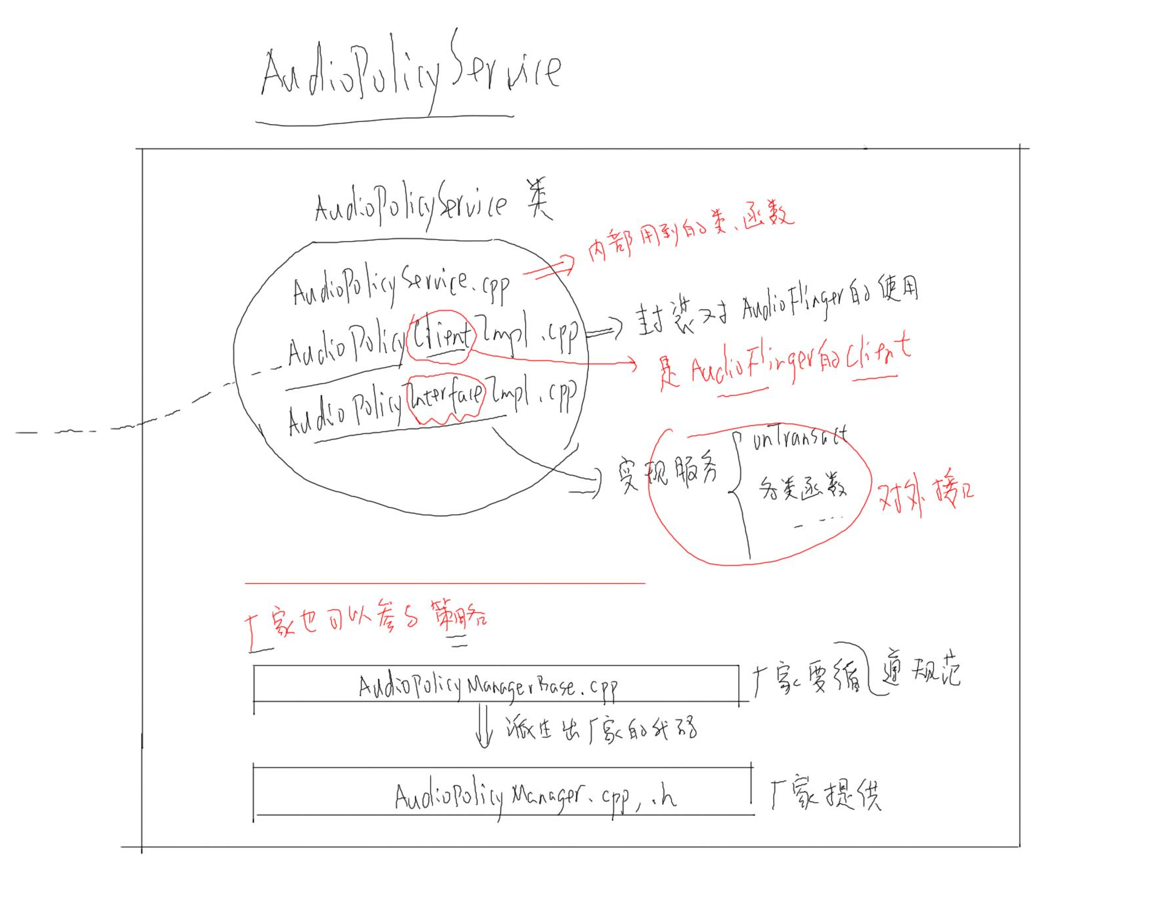 AudioPolicyService
AudioPolicyService 类
AudioPolicyService.cpp
内部用到的类、函数
AudioPolicyClientImpl.cpp
封装对AudioFlinger的使用
是AudioFlinger的Client
AudioPolicyInterfaceImpl.cpp
实现服务
onTransact
各类函数
对外接口
厂家也可以参与策略
AudioPolicyManagerBase.cpp
厂家要循遵规范
派生出厂家的代码
AudioPolicyManager.cpp,.h
厂家提供